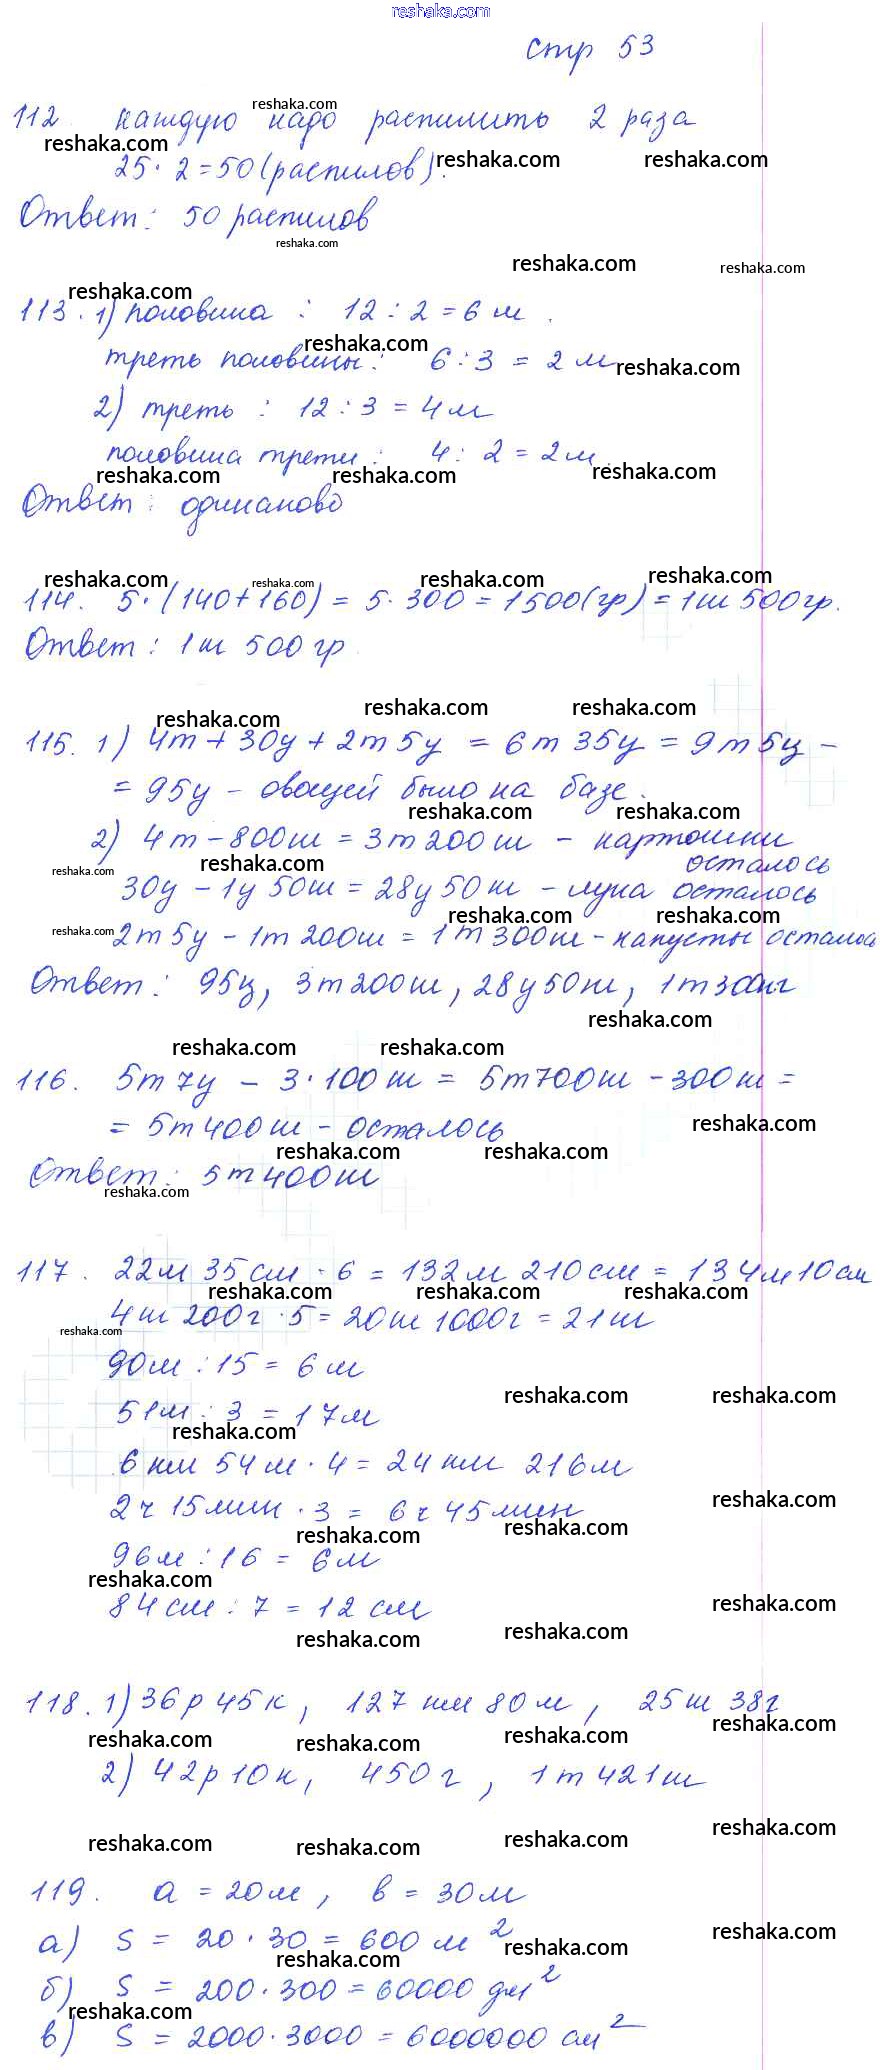 reshaka.com
стр 53
112. каждую надо распилить 2 раза
25 · 2 = 50 (распилов).
Ответ: 50 распилов
113. 1) половина : 12 : 2 = 6 м.
треть половины : 6 : 3 = 2 м
2) треть : 12 : 3 = 4 м
половина трети : 4 : 2 = 2 м.
Ответ : одинаково
114. 5 · (140 + 160) = 5 · 300 = 1500 (гр) = 1 кг 500 гр.
Ответ : 1 кг 500 гр
115. 1) 4 т + 30 ц + 2 т 5 ц = 6 т 35 ц = 9 т 5 ц =
= 95 ц - овощей было на базе.
2) 4 т - 800 кг = 3 т 200 кг - картошки
осталось
30 ц - 1 ц 50 кг = 28 ц 50 кг - лука осталось
2 т 5 ц - 1 т 200 кг = 1 т 300 кг - капусты осталось
Ответ : 95 ц, 3 т 200 кг, 28 ц 50 кг, 1 т 300 кг
116. 5 т 7 ц - 3 · 100 кг = 5 т 700 кг - 300 кг =
= 5 т 400 кг - осталось
Ответ : 5 т 400 кг
117. 22 м 35 см · 6 = 132 м 210 см = 134 м 10 см
4 кг 200 г · 5 = 20 кг 1000 г = 21 кг
90 м : 15 = 6 м
51 м : 3 = 17 м
6 км 54 м · 4 = 24 км 216 м
2 ч 15 мин · 3 = 6 ч 45 мин
96 м : 16 = 6 м
84 см : 7 = 12 см
118. 1) 36 р 45 к, 127 км 80 м, 25 кг 38 г
2) 42 р 10 к, 450 г, 1 т 421 кг
119. а = 20 м, в = 30 м
а) S = 20 · 30 = 600 м²
б) S = 200 · 300 = 60000 дм²
в) S = 2000 · 3000 = 6000000 см²